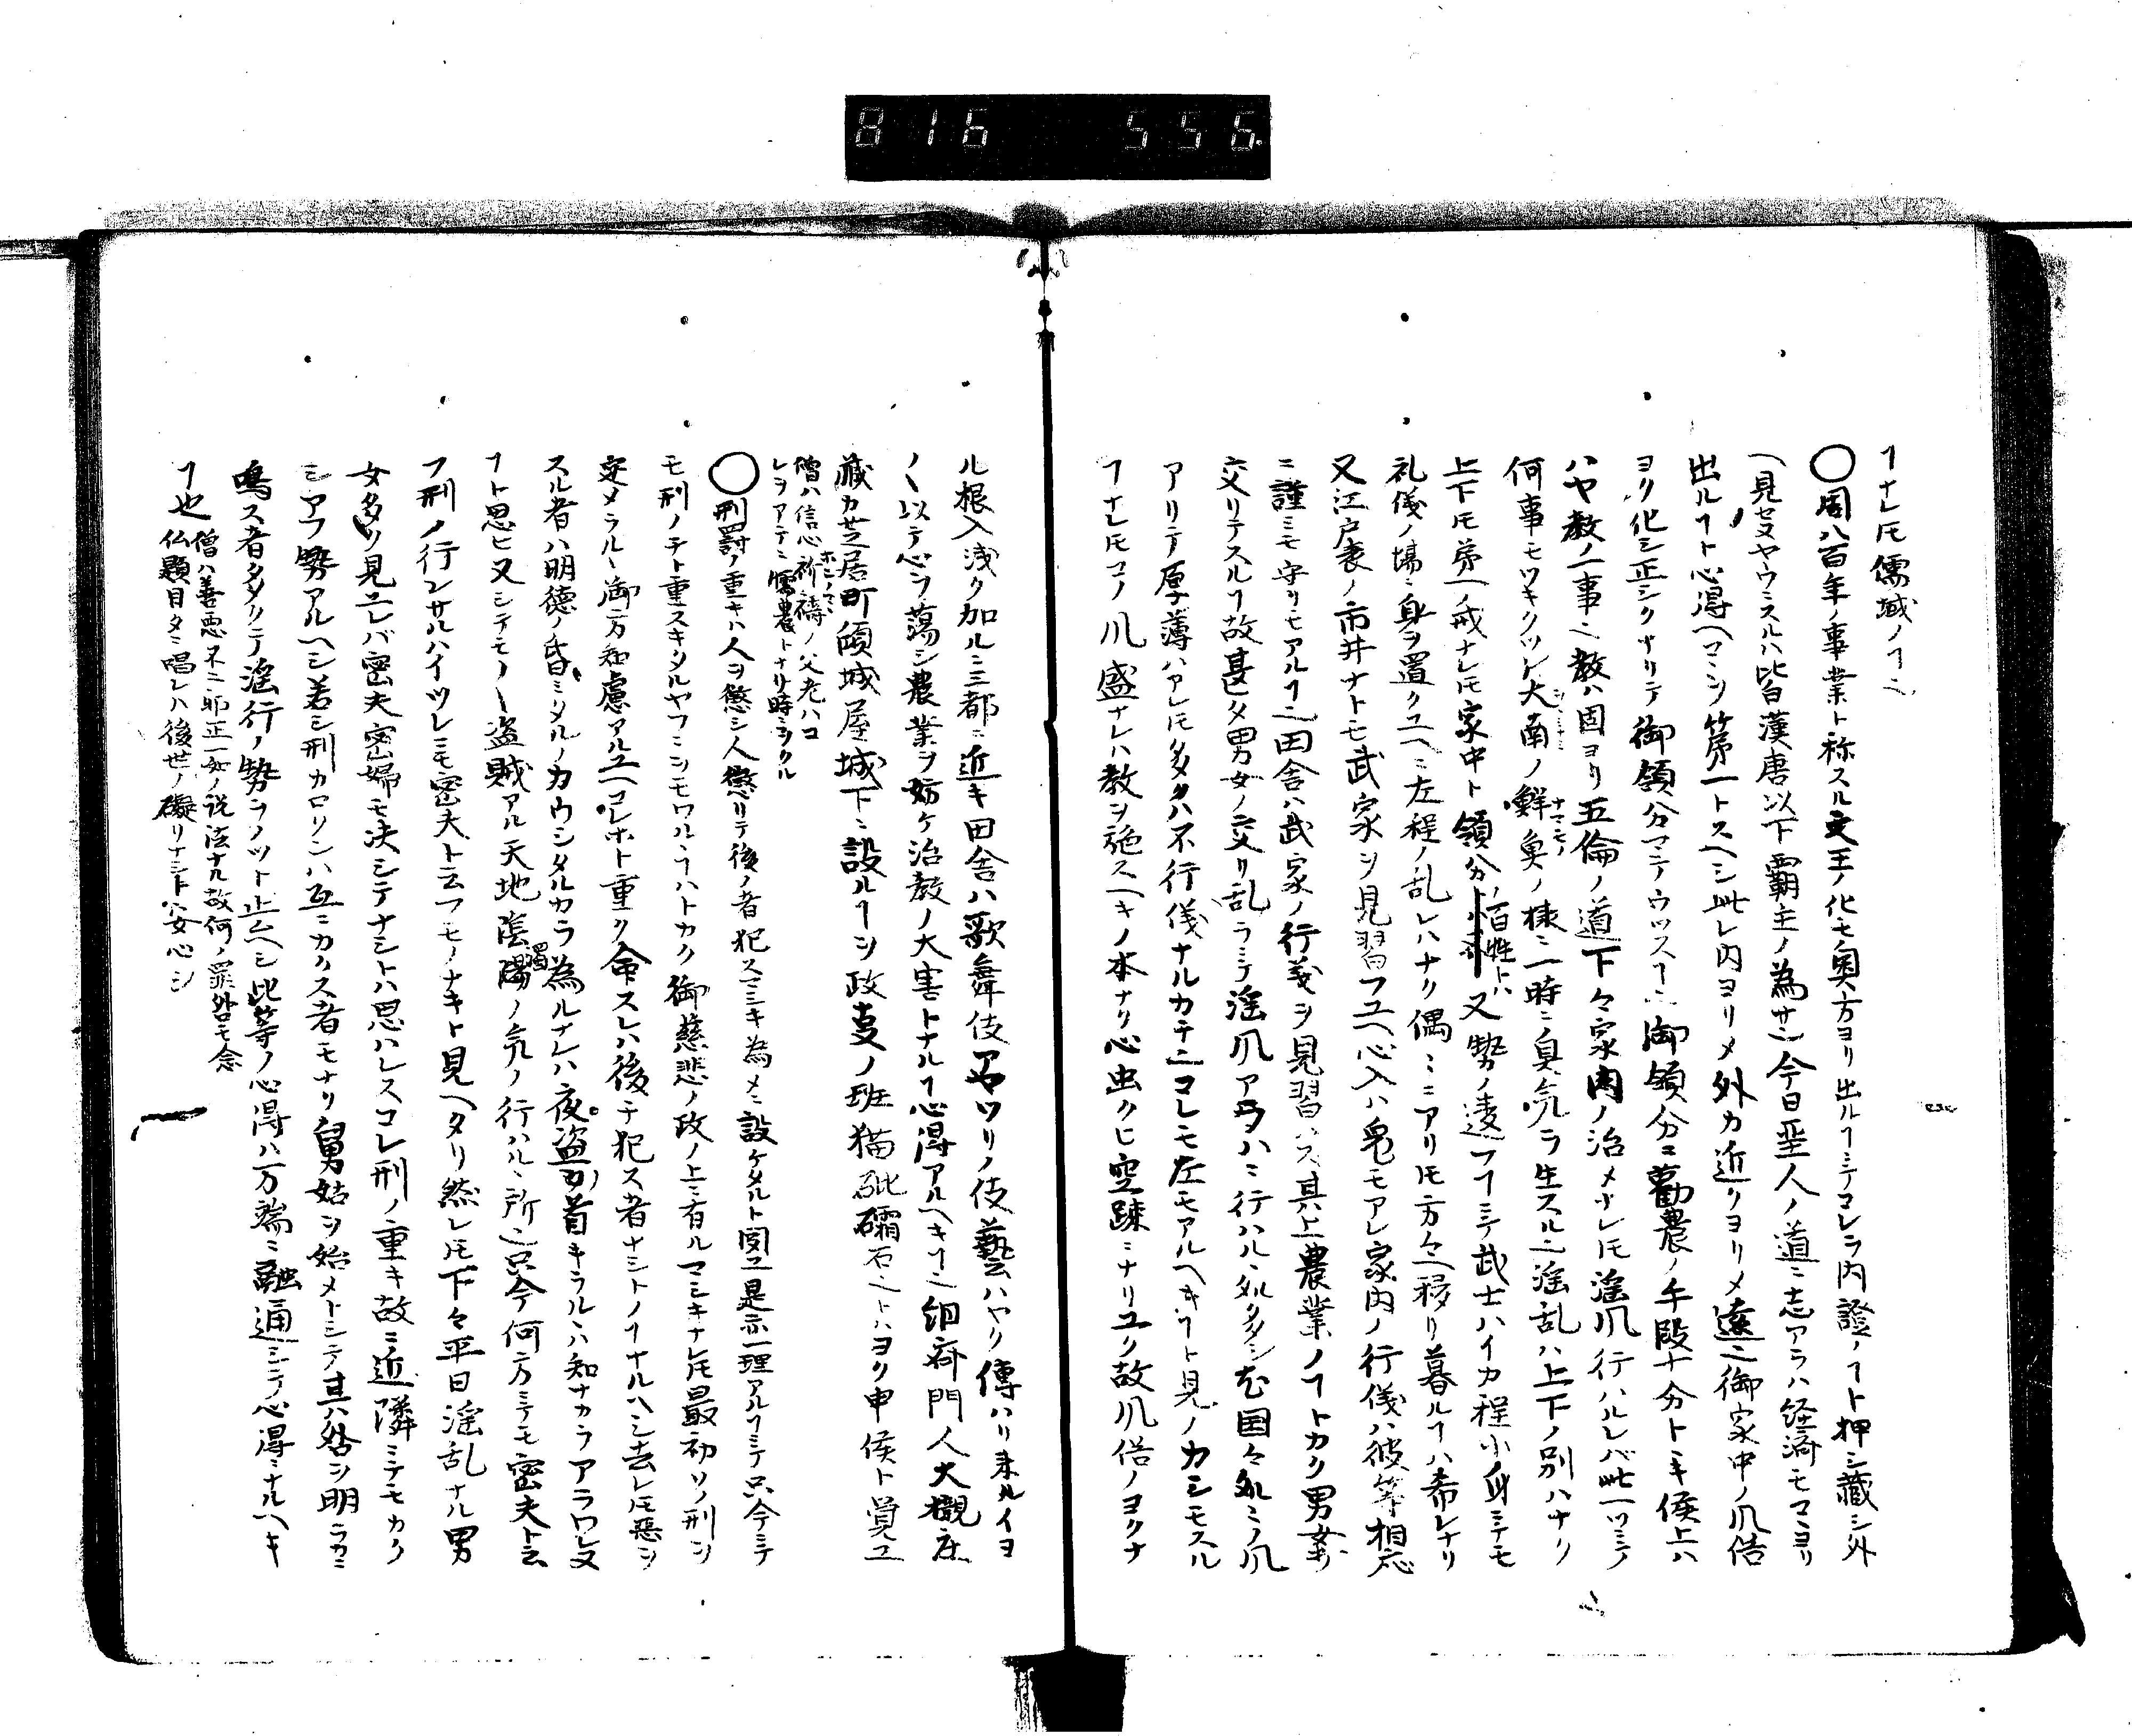 816 556
ヿナレ𪜈儒域ノヿ也
〇周八百年ノ事業ト称スル文王ノ化モ奥方ヨリ出ルヿニテコレヲ内證ノヿト押シ藏シ外
ヘ見セヌヤウニスルハ皆漢唐以下覇主ノ為サ也今日聖人ノ道ニ志アラハ経済モマヨリ
出ルヿト心得ヘマシ第一トスヘシ此レ内ヨリメ外カ近クヨリメ遠也御家中ノ風俗
ヨリ化シ正シクナリテ御領分マテウツスヿ也御領分ヱ勧農ノ手段十分トキ候上ハ
ハヤ教ノ事也教ハ固ヨリ五倫ノ道下々家内ノ治メナレ𪜈淫風行ハルレバ此一ツニテ
何事モツキクツレ大南ノ鮮魚ノ様ニ一時ニ臭気ヲ生スル也淫乱ハ上下ノ別ハナク
上下𪜈第一ノ戒ナレ𪜈家中ト領分ノ百姓トハ又勢ノ違フヿニテ武士ハイカ程小身ニテモ
礼儀ノ場ニ身ヲ置クユヘニ左程ノ乱レハナク偶ニニアリ𪜈方々ヘ移リ暮ルヿハ希レナリ
又江戸表ノ市井ナトモ武家ヲ見習フユヘ心入ハ兎モアレ家内ノ行儀ハ彼等相応
ニ謹ミモ守リモアルヿ也田舎ハ武家ノ行義ヲ見習ハス其上農業ノヿトカク男女
交リテスルヿ故甚タ男女ノ交リ乱ラニテ淫風アラハニ行ハル処多シ尤国々処ニノ風
アリテ厚薄ハアレ𪜈多クハ不行儀ナルカチ也コレモ左モアルヘキヿト見ノカシモスル
ヿナレ𪜈コノ風盛ナレハ教ヲ施スヘキノ本ナリ心虫クヒ空疎ニナリユク故風俗ノヨクナ
ル根入浅ク加ルニ三都ニ近キ田舎ハ歌舞伎アヤツリノ伎藝ハヤリ傳ハリ来ルイヨ
〱以テ心ヲ蕩シ農業ヲ妨ケ治教ノ大害トナルヿ心得アルヘキヿ也細斎門人大槻庄
藏カ芝居町傾城屋城下ニ設ルヿヲ政事ノ班猫砒礵石也トハヨク申候ト覚ユ
僧ハ信心祈禱ノ父老ハコ
レヲアテニ
〇刑罰ノ重キハ人ヲ懲シ人懲リテ後ノ者犯スマシキ為メニ設ケタルト聞ユ是亦一理アルヿニテ只今ニテ
モ刑ノチト重スキタルヤフニシモワルヿハトカク御慈悲ノ政ノ上ニ有ルマシキナレ𪜈最初ソノ刑ヲ
定メラルヽ御方知慮アルユヘコレホト重ク命スレハ後チ犯ス者ナシトノヿナルヘシ去レ𪜈悪ヲ
スル者ハ明徳ノ昏ミタルノカウシタルカラ為ルナレハ夜盗カ首キラルハ知ナカラアラワレヌ
ヿト思ヒ又シテモ〱盗賊アル天地陰陽ノ気ノ行ハルヽ所也只今何方ニテモ密夫ト云
フ刑ノ行ンサルハイツレニモ密夫ト云フモノナキト見ヘタリ然レ𪜈下々平日淫乱ナル男
女多ツ見ユレバ密夫密婦モ決シテナシトハ思ハレスコレ刑ノ重キ故ニ近隣ニテモカク
シアフ勢アルヘシ若シ刑カロソンハ互ニカクス者モナリ舅姑ヲ始メトシテ其ハ咎ヲ明ラカニ
鳴ス者多クテ淫行ノ勢ヲノツト止ムヘシ此等ノ心得ハ万端ニ融通シテノ心得ニナルヘキ
ヿ也
僧ハ善悪不二邪正一如ノ説法ナル故何ノ罪咎モ念
仏題目タニ唱レハ後世ノ礙リナシト安心シ